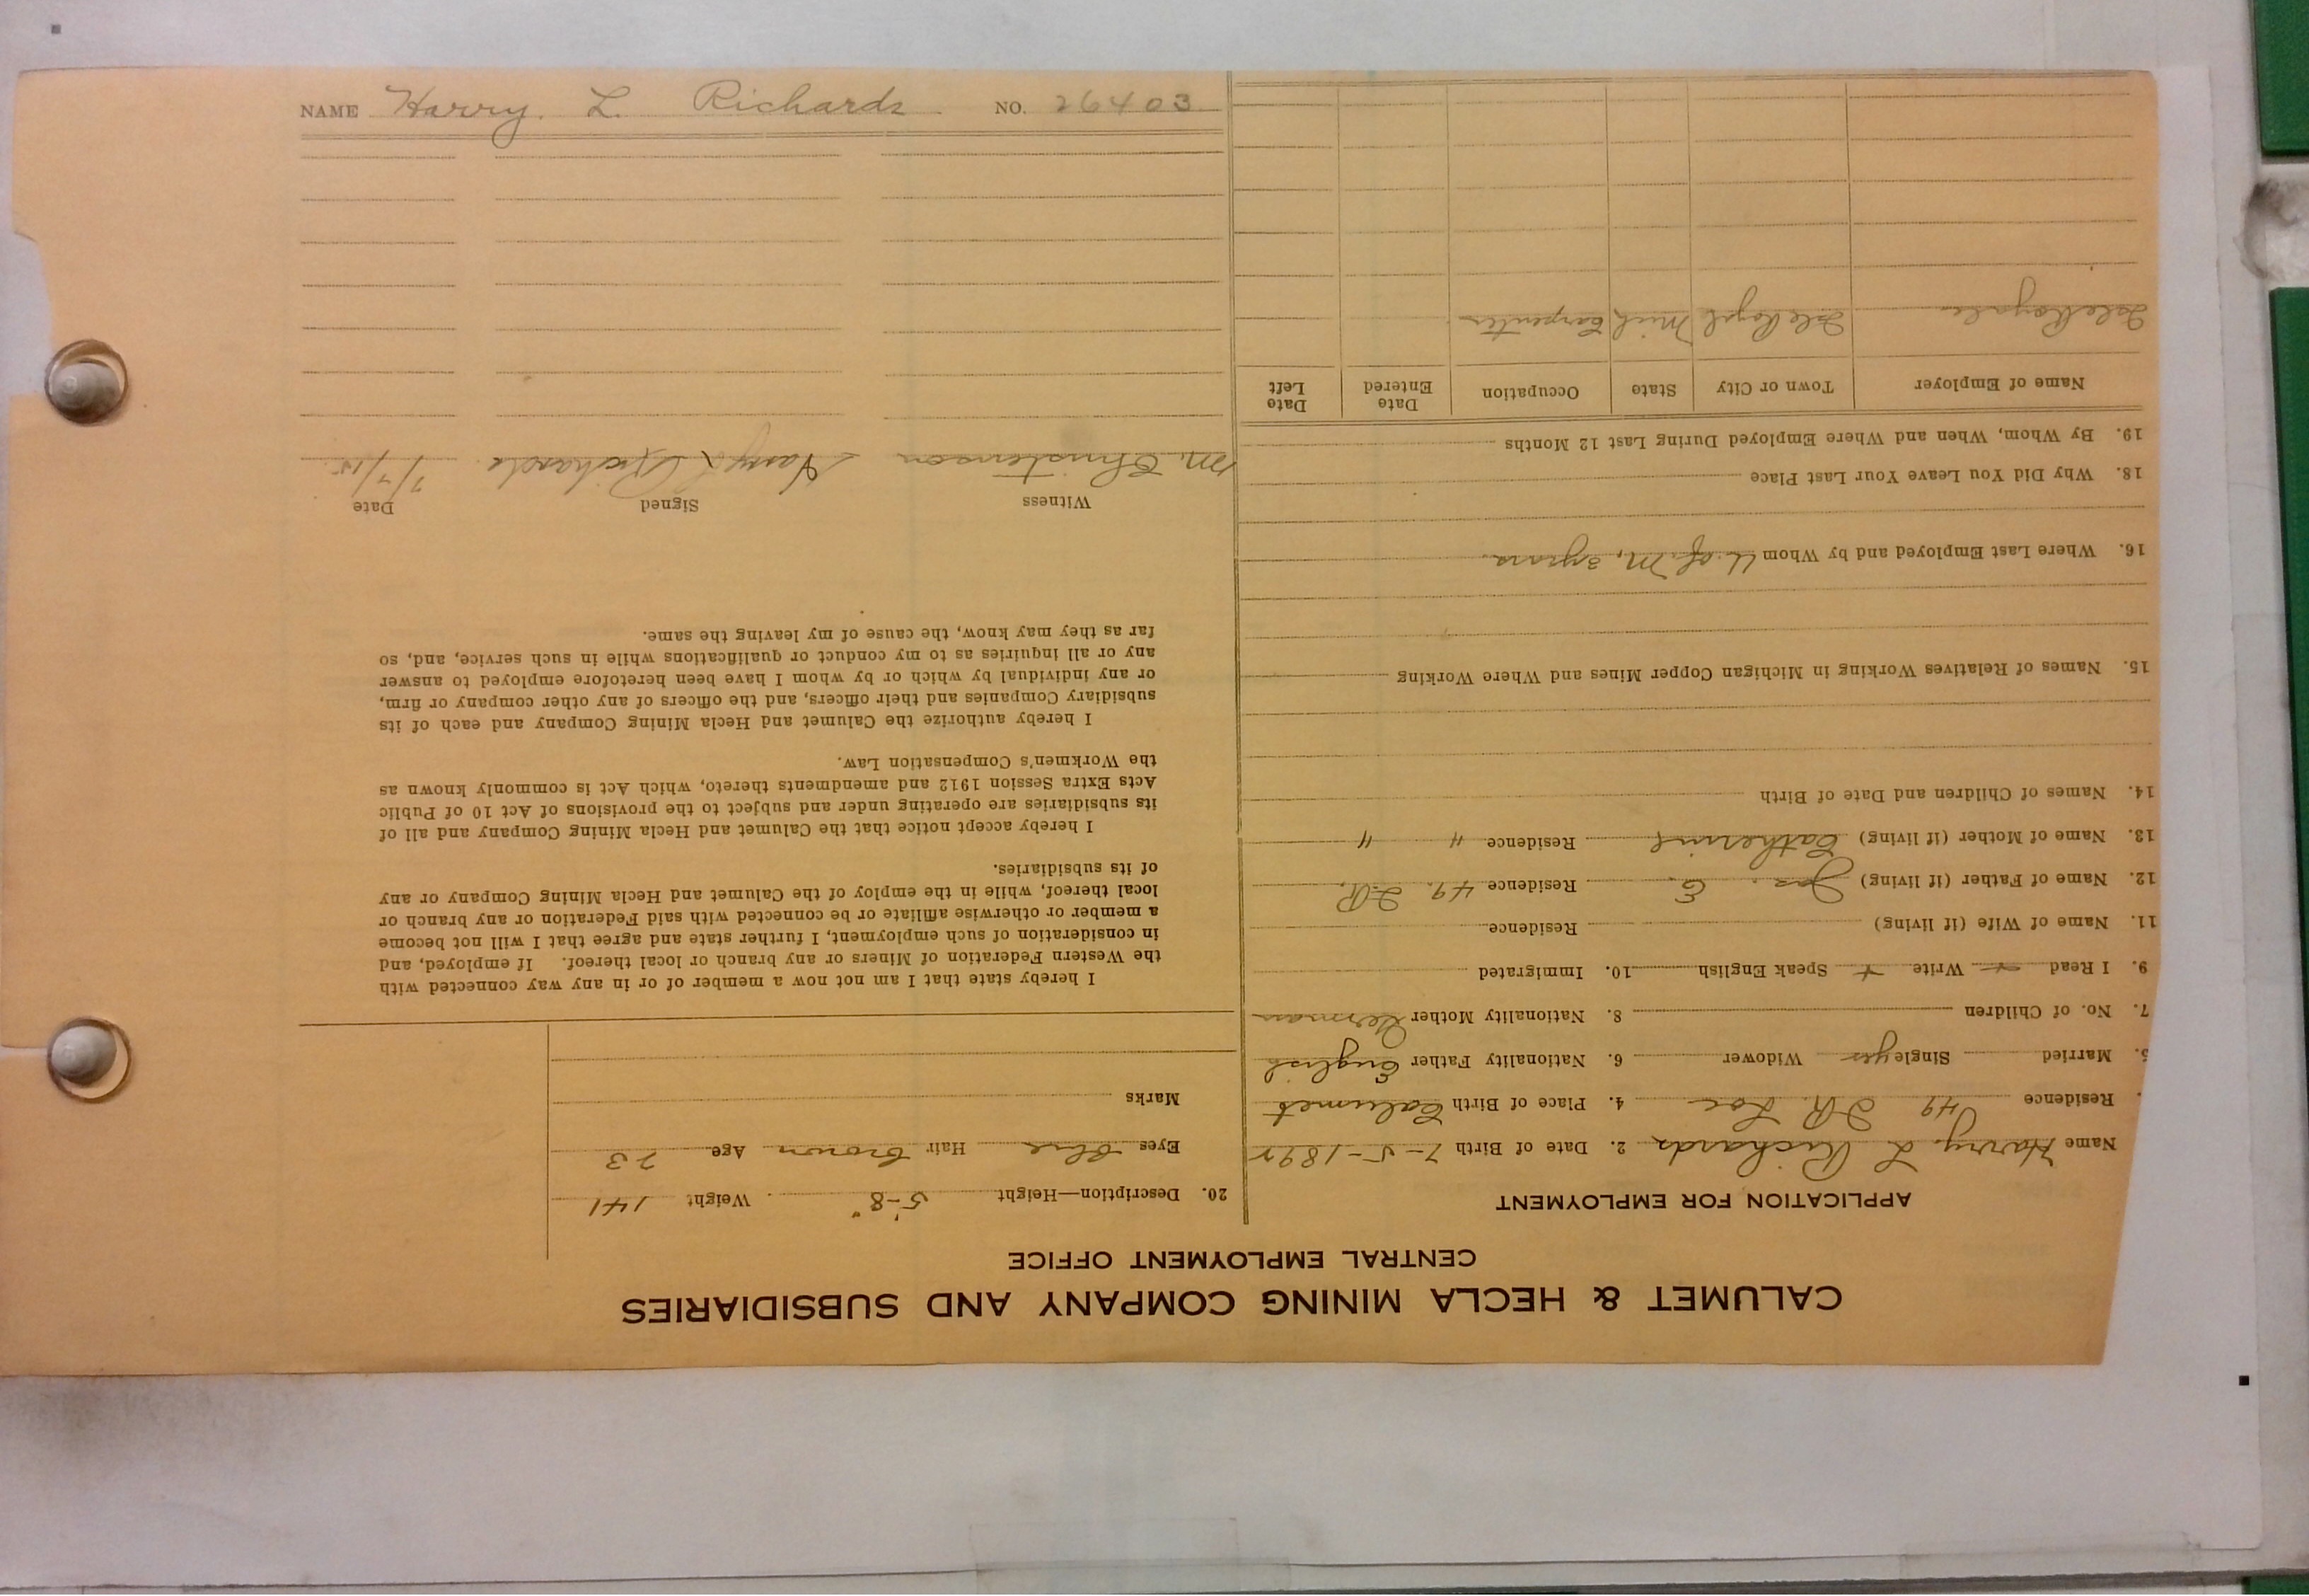 NAME Harry. L. Richards NO. 26403
CALUMET & HECLA MINING COMPANY AND SUBSIDIARIES
CENTRAL EMPLOYMENT OFFICE
APPLICATION FOR EMPLOYMENT
Name Harry L Richards 2. Date of Birth 7-5-1892
Residence 49 I R. Loc 4. Place of Birth Calumet
5. Married Single yes Widower 6. Nationality Father English
7. No. of Children 8. Nationality Mother German
9. I Read + Write + Speak English 10. Immigrated
11. Name of Wife (if living) Residence
12. Name of Father (if living) Jas. E. Residence 49. I.R.
13. Name of Mother (if living) Catherine Residence " "
14. Names of Children and Date of Birth
15. Names of Relatives Working in Michigan Copper Mines and Where Working
16. Where Last Employed and by Whom U. of M, 3 years
18. Why Did You Leave Your Last Place
19. By Whom, When and Where Employed During Last 12 Months
Name of Employer Town or City State Occupation Date Entered Date Left
Isle Royale Isle Royal Mich Carpenter
20. Description—Height 5'-8" Weight 141
Eyes Blue Hair Brown Age 23
Marks
I hereby state that I am not now a member of or in any way connected with
the Western Federation of Miners or any branch or local thereof. If employed, and
in consideration of such employment, I further state and agree that I will not become
a member or otherwise affiliate or be connected with said Federation or any branch or
local thereof, while in the employ of the Calumet and Hecla Mining Company or any
of its subsidiaries.
I hereby accept notice that the Calumet and Hecla Mining Company and all of
its subsidiaries are operating under and subject to the provisions of Act 10 of Public
Acts Extra Session 1912 and amendments thereto, which Act is commonly known as
the Workmen's Compensation Law.
I hereby authorize the Calumet and Hecla Mining Company and each of its
subsidiary Companies and their officers, and the officers of any other company or firm,
or any individual by which or by whom I have been heretofore employed to answer
any or all inquiries as to my conduct or qualifications while in such service, and, so
far as they may know, the cause of my leaving the same.
Witness Signed Date
M. Christenson Harry L Richards 7/7/15